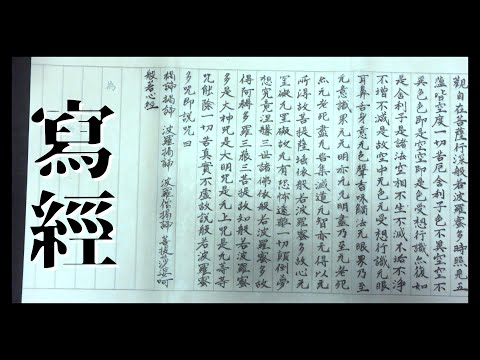 觀自在菩薩行深般若波羅蜜多時照見五
蘊皆空度一切苦厄舍利子色不異空空不
異色色即是空空即是色受想行識亦復如
是舍利子是諸法空相不生不滅不垢不淨
不增不減是故空中无色无受想行識无眼
耳鼻舌身意无色聲香味觸法无眼界乃至
无意識界无无明亦无无明盡乃至无老死
亦无老死盡无苦集滅道无智亦无得以无
所得故菩提薩埵依般若波羅蜜多故心无
罣礙无罣礙故无有恐怖遠離一切顛倒夢
想究竟涅槃三世諸佛依般若波羅蜜多故
得阿耨多羅三藐三菩提故知般若波羅蜜
多是大神咒是大明咒是无上咒是无等等
咒能除一切苦真實不虛故說般若波羅蜜
多咒即說咒曰
揭諦揭諦 波羅揭諦 波羅僧揭諦 菩提莎婆訶
般若心經
為
寫經